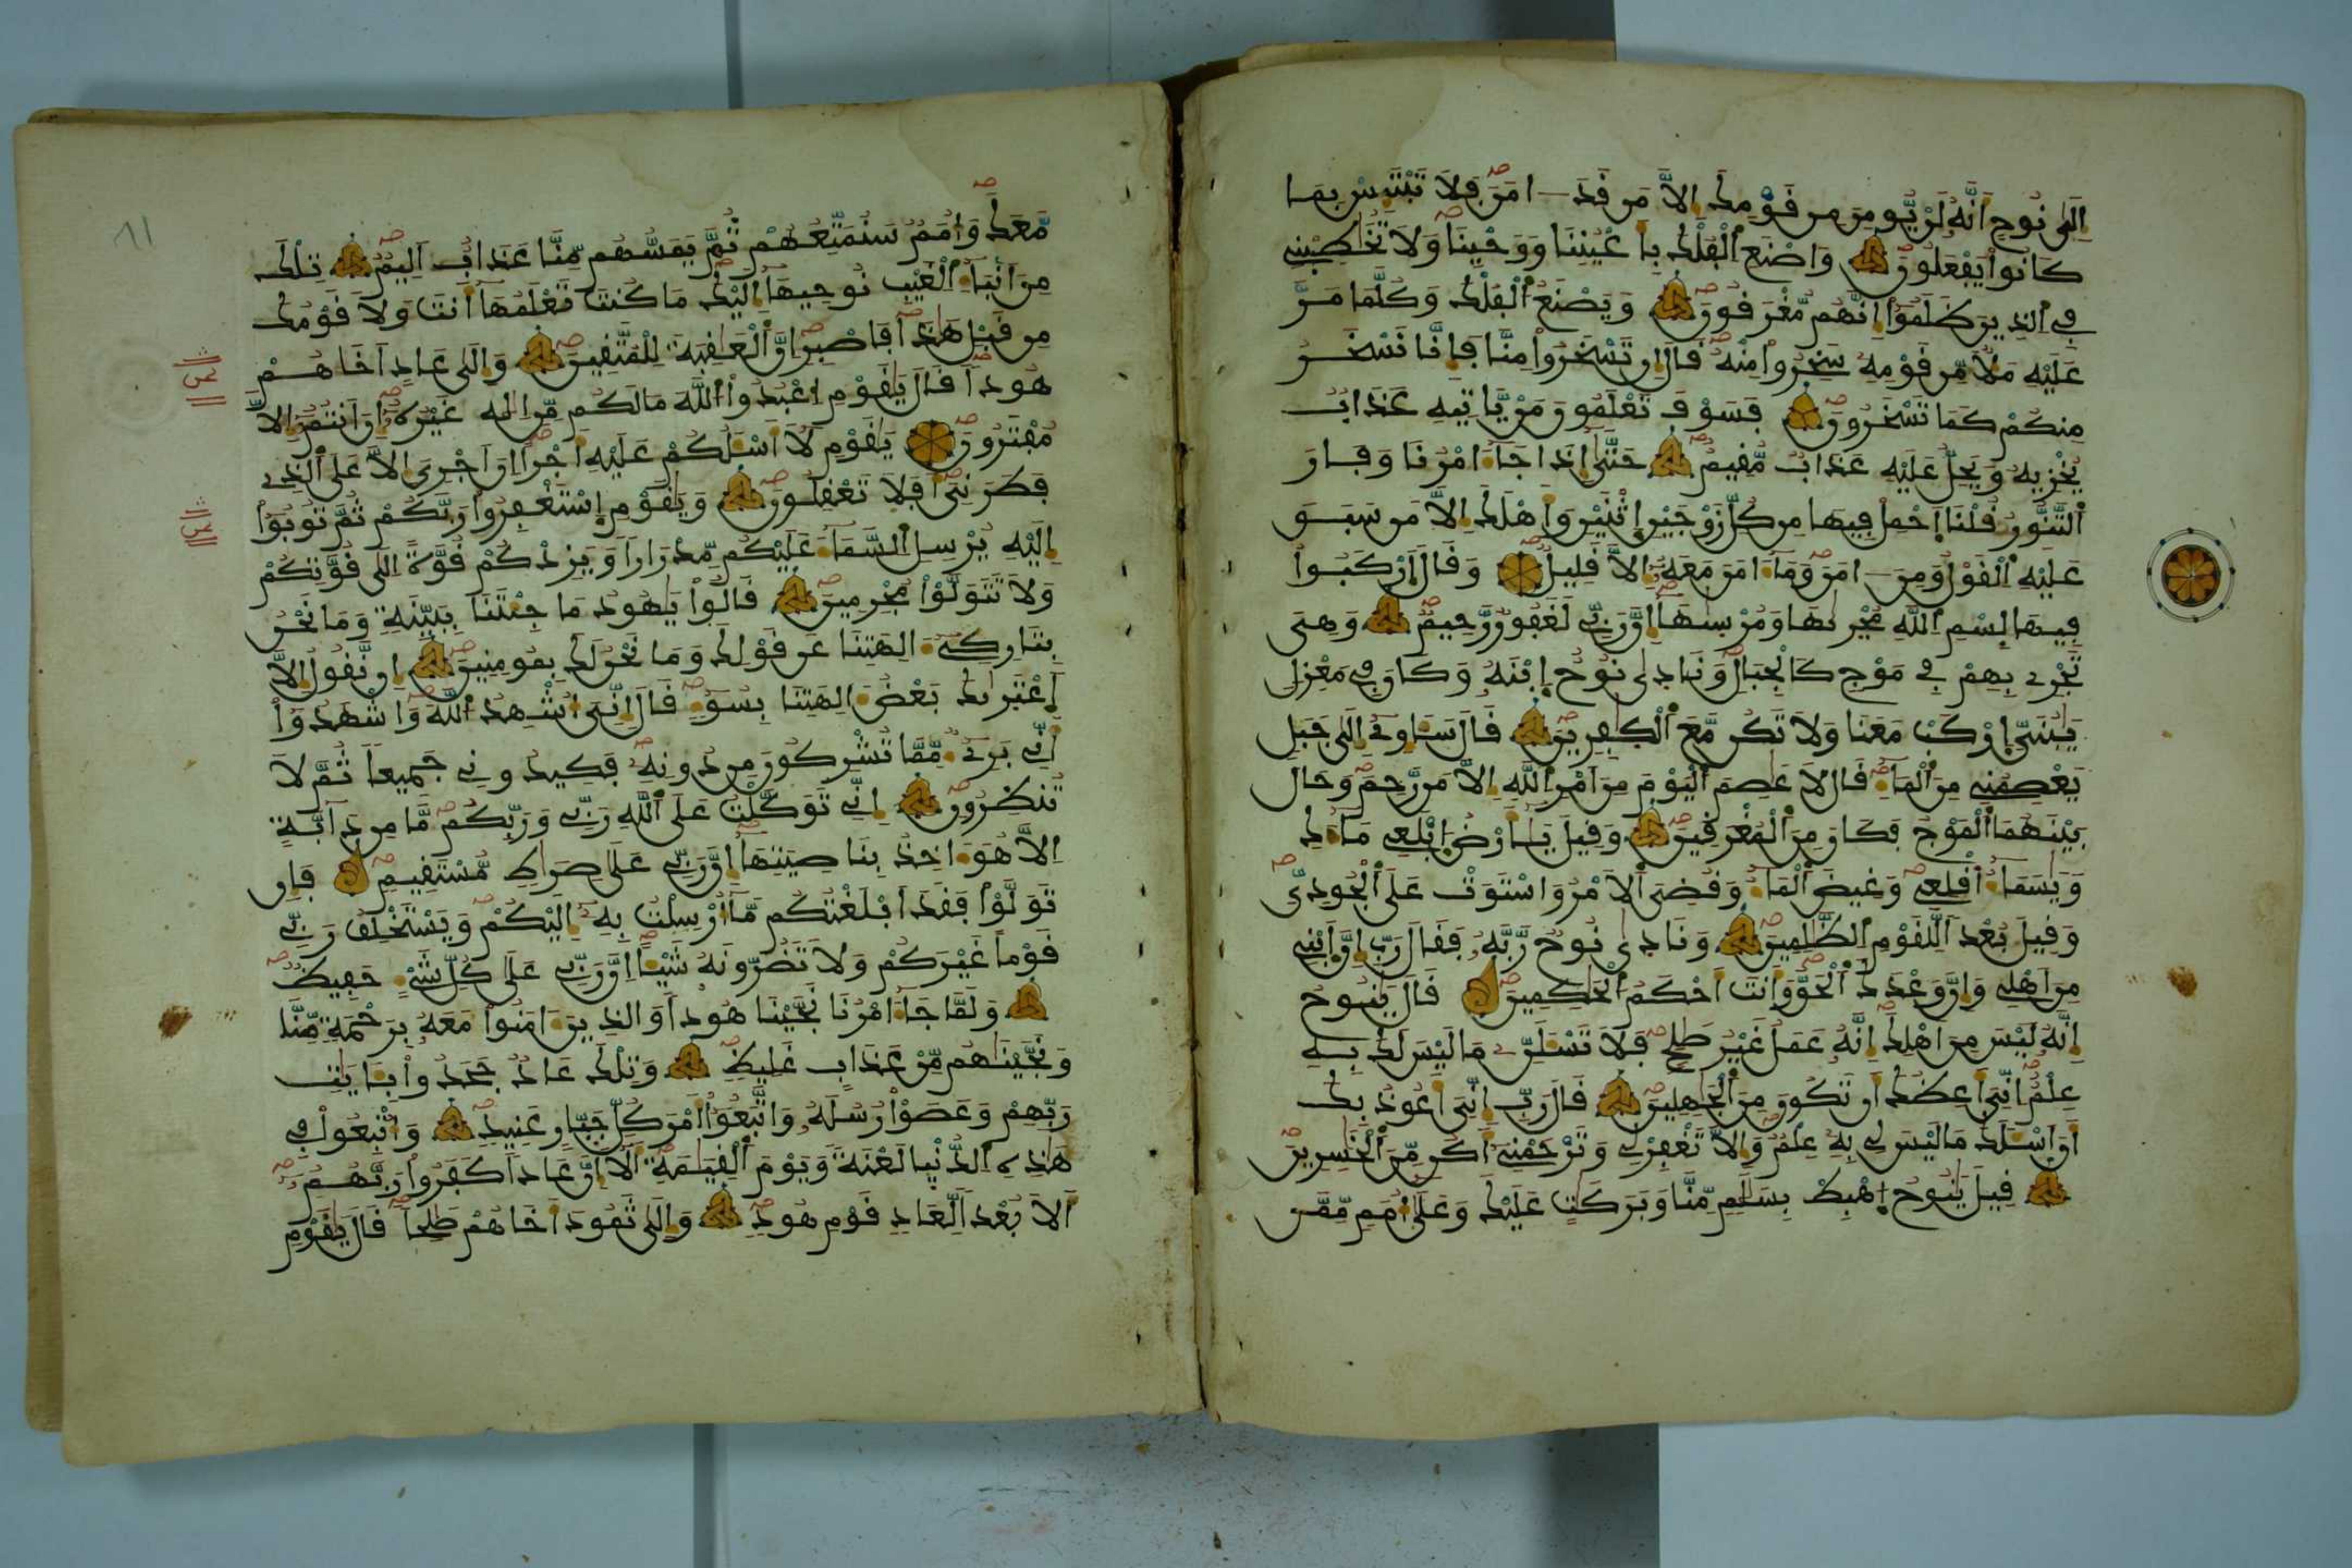 إِلَىٰ نُوحٍ أَنَّهُ لَنْ يُّومِنَ مِن قَوْمِكَ إِلاَّ مَن قَدَ ـ امَنَ فَلاَ تَبْتَئِسْ بِمَا
كَانُواْ يَفْعَلُونَ وَاصْنَعِ الْفُلْكَ بِأَعْيُنِنَا وَوَحْيِنَا وَلاَ تُخَٰطِبْنِے
فِے الذِينَ ظَلَمُواْ إِنَّهُم مُّغْرَقُونَ وَيَصْنَعُ الْفُلْكَ وَكُلَّمَا مَرَّ
عَلَيْهِ مَلَأٌ مِّن قَوْمِهِ سَخِرُواْ مِنْهُ قَالَ إِن تَسْخَرُواْ مِنَّا فَإِنَّا نَسْخَرُ
مِنكُمْ كَمَا تَسْخَرُونَ فَسَوْفَ تَعْلَمُونَ مَنْ يَّاتِيهِ عَذَابٌ
يُخْزِيهِ وَيَحِلُّ عَلَيْهِ عَذَابٌ مُّقِيمٌ حَتَّىٰ إِذَا جَاءَ امْرُنَا وَفَارَ
التَّنُّورُ قُلْنَا اَحْمِلْ فِيهَا مِن كُلِّ زَوْجَيْنِ إِثْنَيْنِ وَأَهْلَكَ إِلاَّ مَن سَبَقَ
عَلَيْهِ الْقَوْلُ وَمَنَ ـ امَنَ وَمَا ءَامَنَ مَعَهُ إِلاَّ قَلِيلٌ وَقَالَ اَرْكَبُواْ
فِيهَا بِسْمِ اللَّهِ مُجْرَىٰهَا وَمُرْسَىٰهَا إِنَّ رَبِّے لَغَفُورٌ رَّحِيمٌ وَهِىَ
تَجْرِے بِهِمْ فِے مَوْجٍ كَالْجِبَالِ وَنَادَىٰ نُوحٌ إِبْنَهُ وَكَانَ فِے مَعْزِلٍ
يَٰبُنَىِّ إِرْكَب مَّعَنَا وَلاَ تَكُن مَّعَ الْكَٰفِرِينَ قَالَ سَـَٔاوِے إِلَىٰ جَبَلٍ
يَعْصِمُنِے مِنَ الْمَاءِ قَالَ لاَ عَاصِمَ الْيَوْمَ مِنَ اَمْرِ اللَّهِ إِلاَّ مَن رَّحِمَ وَحَالَ
بَيْنَهُمَا الْمَوْجُ فَكَانَ مِنَ الْمُغْرَقِينَ وَقِيلَ يَٰأَرْضُ اِبْلَعِے مَاءَكِ
وَيَٰسَمَاءُ اَقْلِعِے وَغِيضَ الْمَاءُ وَقُضِىَ الاَمْرُ وَاسْتَوَتْ عَلَى الْجُودِىِّ
وَقِيلَ بُعْدًا لِّلْقَوْمِ الظَّٰلِمِينَ وَنَادَىٰ نُوحٌ رَّبَّهُ فَقَالَ رَبِّ إِنَّ اَبْنِے
مِنَ اَهْلِے وَإِنَّ وَعْدَكَ الْحَقُّ وَأَنتَ أَحْكَمُ الْحَٰكِمِينَ قَالَ يَٰنُوحُ
إِنَّهُ لَيْسَ مِنَ اَهْلِكَ إِنَّهُ عَمَلٌ غَيْرُ صَٰلِحٍ فَلاَ تَسْـَٔلَنِّے مَا لَيْسَ لَكَ بِهِ
عِلْمٌ إِنِّىَ أَعِظُكَ أَن تَكُونَ مِنَ الْجَٰهِلِينَ قَالَ رَبِّ إِنِّىَ أَعُوذُ بِكَ
أَنَ اَسْـَٔلَكَ مَا لَيْسَ لِے بِهِ عِلْمٌ وَإِلاَّ تَغْفِرْ لِے وَتَرْحَمْنِے أَكُن مِّنَ الْخَٰسِرِينَ
قِيلَ يَٰنُوحُ إِهْبِطْ بِسَلَٰمٍ مِّنَّا وَبَرَكَٰتٍ عَلَيْكَ وَعَلَىٰ أُمَمٍ مِّمَّن
مَّعَكَ وَأُمَمٌ سَنُمَتِّعُهُمْ ثُمَّ يَمَسُّهُم مِّنَّا عَذَابٌ اَلِيمٌ تِلْكَ
مِنَ اَنبَاءِ الْغَيْبِ نُوحِيهَا إِلَيْكَ مَا كُنتَ تَعْلَمُهَا أَنتَ وَلاَ قَوْمُكَ
مِن قَبْلِ هَٰذَا فَاصْبِرِ اِنَّ الْعَٰقِبَةَ لِلْمُتَّقِينَ وَإِلَىٰ عَادٍ اَخَاهُمْ
هُودًا قَالَ يَٰقَوْمِ اِعْبُدُواْ اللَّهَ مَا لَكُم مِّنِ اِلَٰهٍ غَيْرُهُ إِنَ اَنتُمُ إِلاَّ
مُفْتَرُونَ يَٰقَوْمِ لاَ أَسْـَٔلُكُمْ عَلَيْهِ أَجْرًا اِنَ اَجْرِىَ إِلاَّ عَلَى الذِے
فَطَرَنِىَ أَفَلاَ تَعْقِلُونَ وَيَٰقَوْمِ إِسْتَغْفِرُواْ رَبَّكُمْ ثُمَّ تُوبُواْ
إِلَيْهِ يُرْسِلِ السَّمَاءَ عَلَيْكُم مِّدْرَارًا وَيَزِدْكُمْ قُوَّةً إِلَىٰ قُوَّتِكُمْ
وَلاَ تَتَوَلَّوْاْ مُجْرِمِينَ قَالُواْ يَٰهُودُ مَا جِئْتَنَا بِبَيِّنَةٍ وَمَا نَحْنُ
بِتَارِكِے ءَالِهَتِنَا عَن قَوْلِكَ وَمَا نَحْنُ لَكَ بِمُومِنِينَ إِن نَّقُولُ إِلاَّ
اَعْتَرَىٰكَ بَعْضُ ءَالِهَتِنَا بِسُوءٍ قَالَ إِنِّىَ أُشْهِدُ اللَّهَ وَاشْهَدُواْ
أَنِّے بَرِےءٌ مِّمَّا تُشْرِكُونَ مِن دُونِهِ فَكِيدُونِے جَمِيعًا ثُمَّ لاَ
تُنظِرُونِ إِنِّے تَوَكَّلْتُ عَلَى اللَّهِ رَبِّے وَرَبِّكُم مَّا مِن دَابَّةٍ
إِلاَّ هُوَ ءَاخِذٌ بِنَاصِيَتِهَا إِنَّ رَبِّے عَلَىٰ صِرَٰطٍ مُّسْتَقِيمٍ فَإِن
تَوَلَّوْاْ فَقَدَ اَبْلَغْتُكُم مَّا أُرْسِلْتُ بِهِ إِلَيْكُمْ وَيَسْتَخْلِفُ رَبِّے
قَوْمًا غَيْرَكُمْ وَلاَ تَضُرُّونَهُ شَيْـًٔا اِنَّ رَبِّے عَلَىٰ كُلِّ شَےْءٍ حَفِيظٌ
وَلَمَّا جَاءَ امْرُنَا نَجَّيْنَا هُودًا وَالذِينَ ءَامَنُواْ مَعَهُ بِرَحْمَةٍ مِّنَّا
وَنَجَّيْنَٰهُم مِّنْ عَذَابٍ غَلِيظٍ وَتِلْكَ عَادٌ جَحَدُواْ بِـَٔايَٰتِ
رَبِّهِمْ وَعَصَوْاْ رُسُلَهُ وَاتَّبَعُواْ أَمْرَ كُلِّ جَبّارٍ عَنِيدٍ وَأُتْبِعُواْ فِے
هَٰذِهِ الدُّنْيَا لَعْنَةً وَيَوْمَ الْقِيَٰمَةِ أَلاَ إِنَّ عَادًا كَفَرُواْ رَبَّهُمُ
أَلاَ بُعْدًا لِّعَادٍ قَوْمِ هُودٍ وَإِلَىٰ ثَمُودَ أَخَاهُمْ صَٰلِحًا قَالَ يَٰقَوْمِ